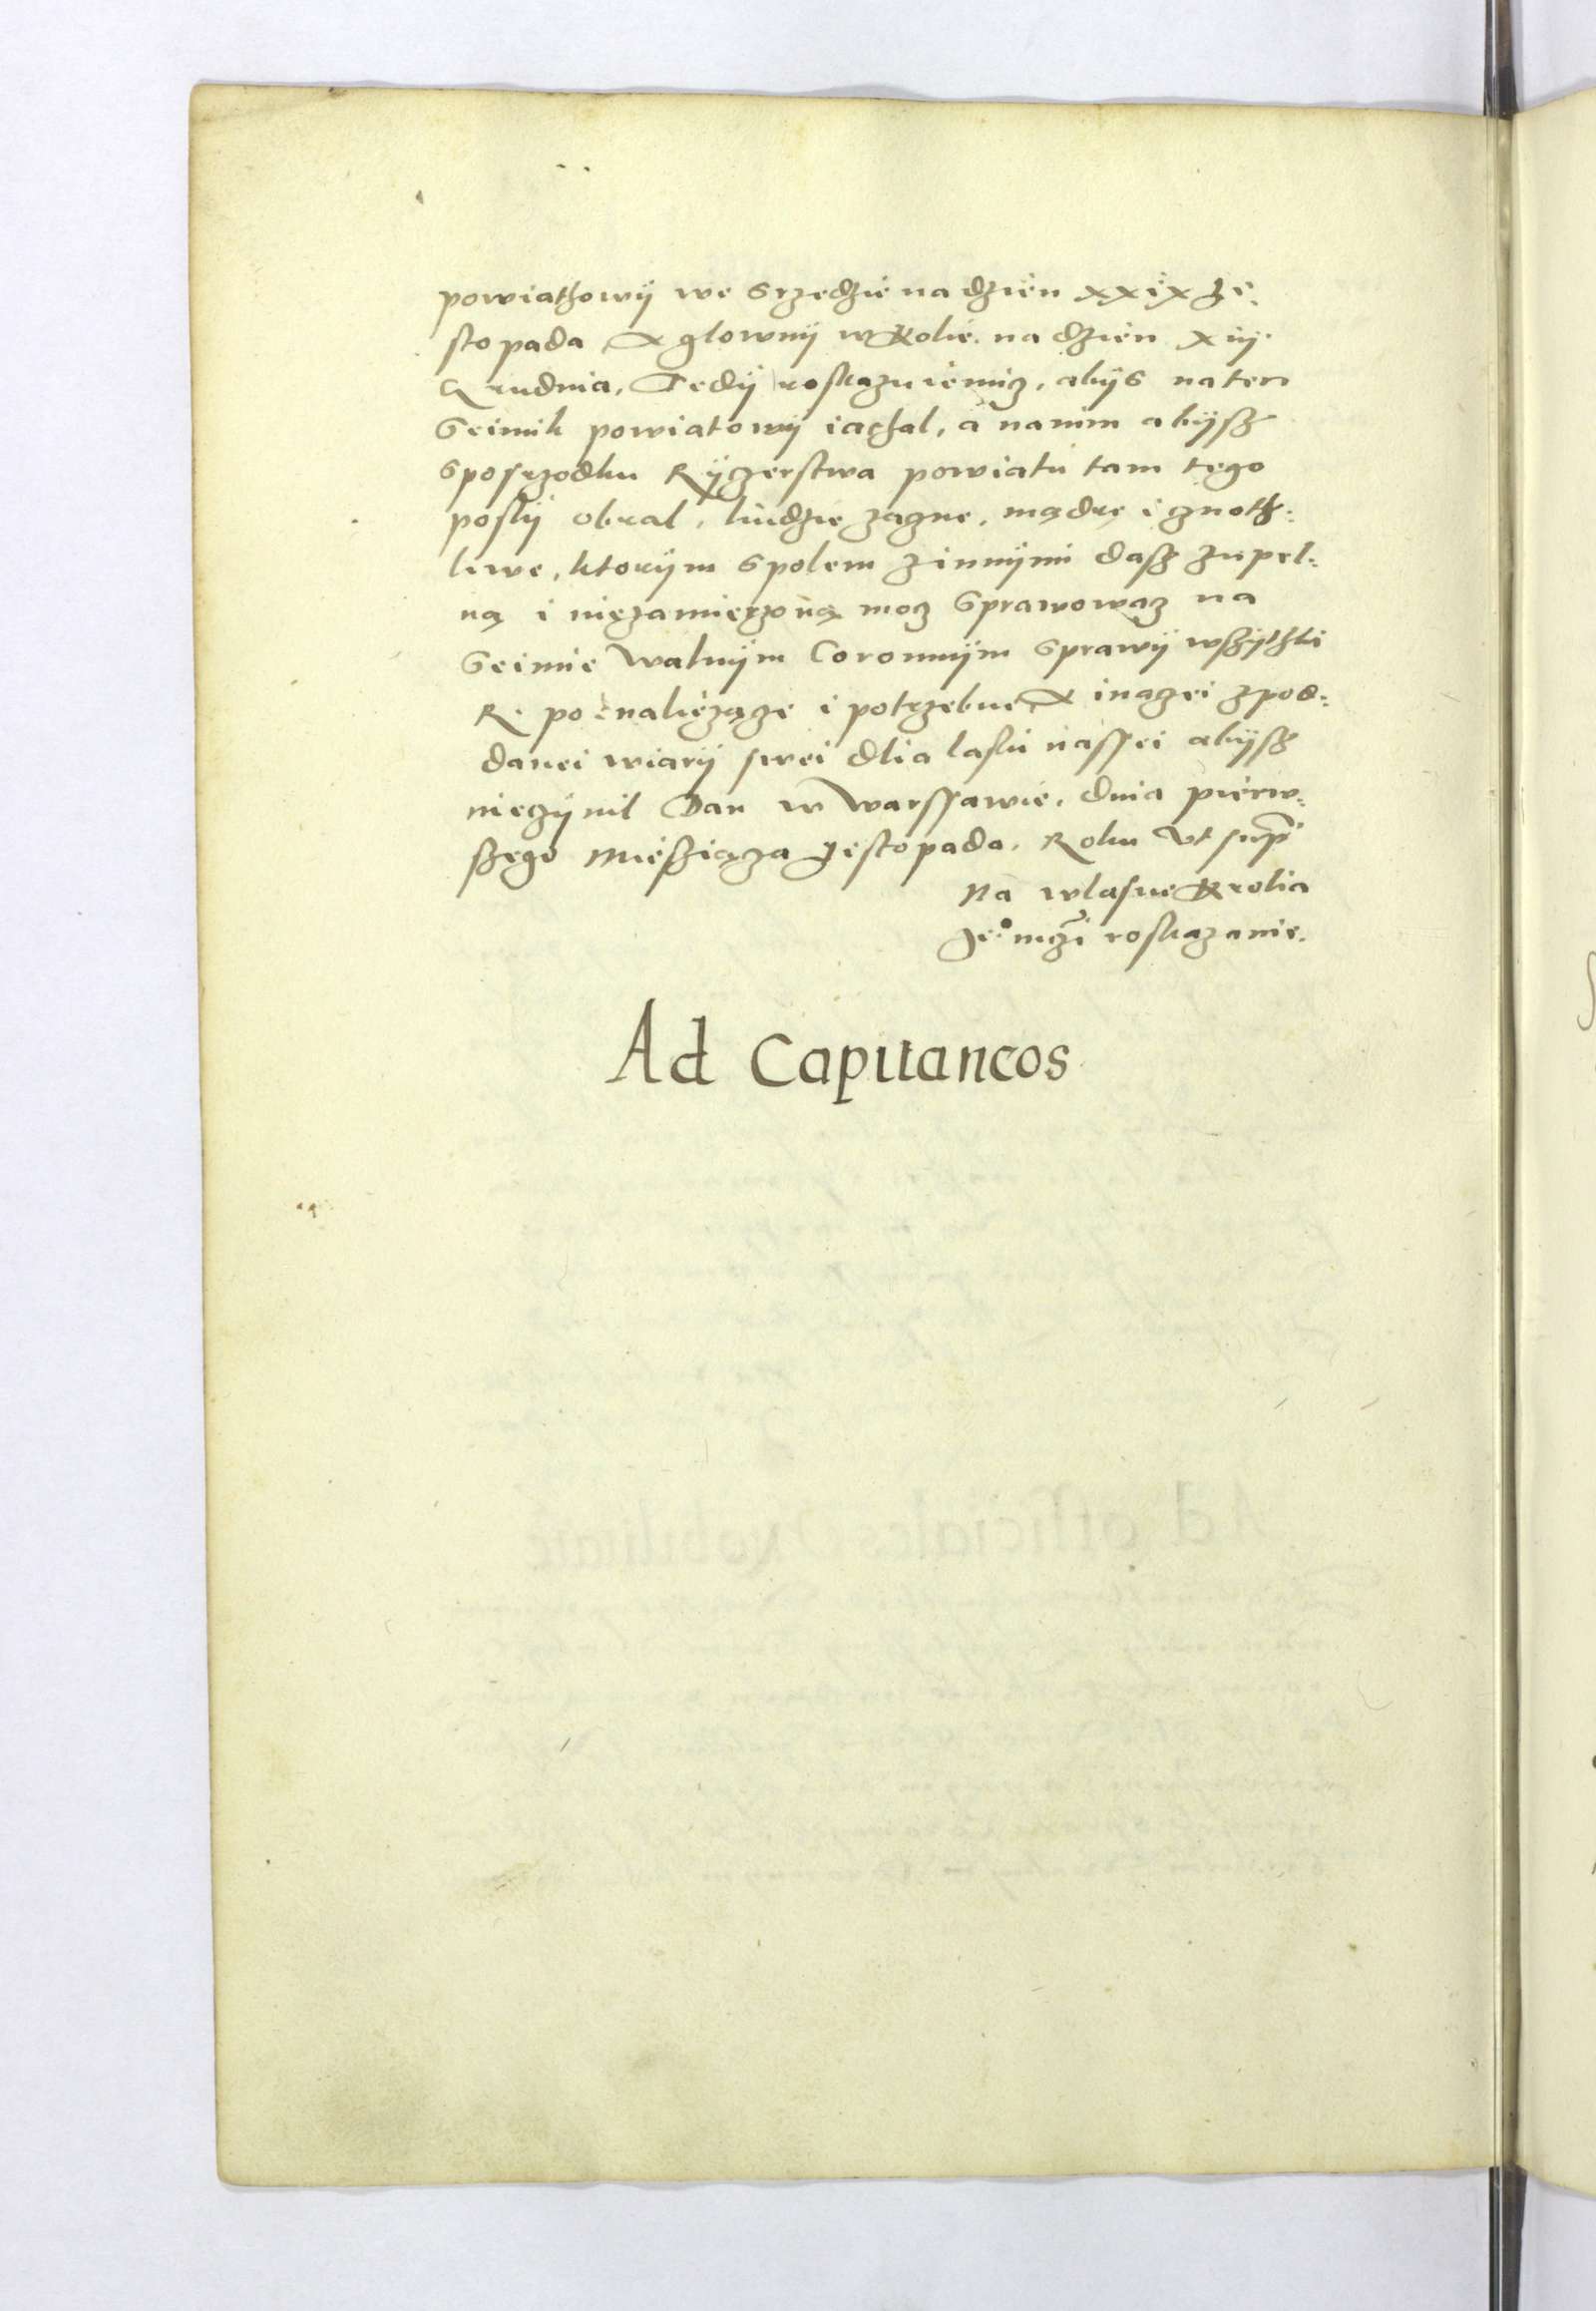 powiathowÿ we Srzedzie na dzien xxix Je.
stopada, A glownÿ w Kolie. na dzien xiij.
Grudnia. Tedÿ roskazuiemÿ, abÿs naten
Seimik powiatowÿ iachal, a nanim abÿsz
sposrzodku Rÿczerstwa powiatu tam tego
poslÿ obral, ludzie zacne, mądre i cznoth:
liwe, ktorÿm spolem zinnÿmi dasz zupel:
ną i niezamierzoną mocz sprawowacz na
Seimie Walnÿm Coronnÿm sprawÿ wszÿthki
R. po: naliezącze i potrzebne, A inaczei zpod:
danei wiarÿ swei dlia laski nassei abÿsz
nieczÿnil Dan w Warssawie, dnia pierw:
szego Miesziącza Jestopada. Roku vt sup
Na wlasne Krolia
Je° mczi roskazanie.
Ad Capitaneos